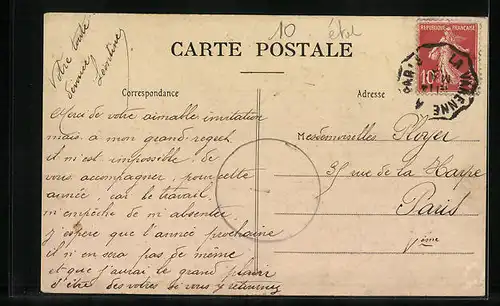 10 étel
CARTE POSTALE
Votre toute
dévouée
Léontine
Correspondance
Adresse
REPUBLIQUE FRANÇAISE
10
PARIS A LA VARENNE
Merci de votre aimable invitation
mais à mon grand regret
il m'est impossible de
vous accompagner pour cette
année, car le travail
m'empêche de m'absenter
j'espère que l'année prochaine
il n'en sera pas de même
et que j'aurai le grand plaisir
d'être des vôtres si vous y retournez
Mesdemoiselles Ployer
35 rue de la Harpe
Paris
Vème